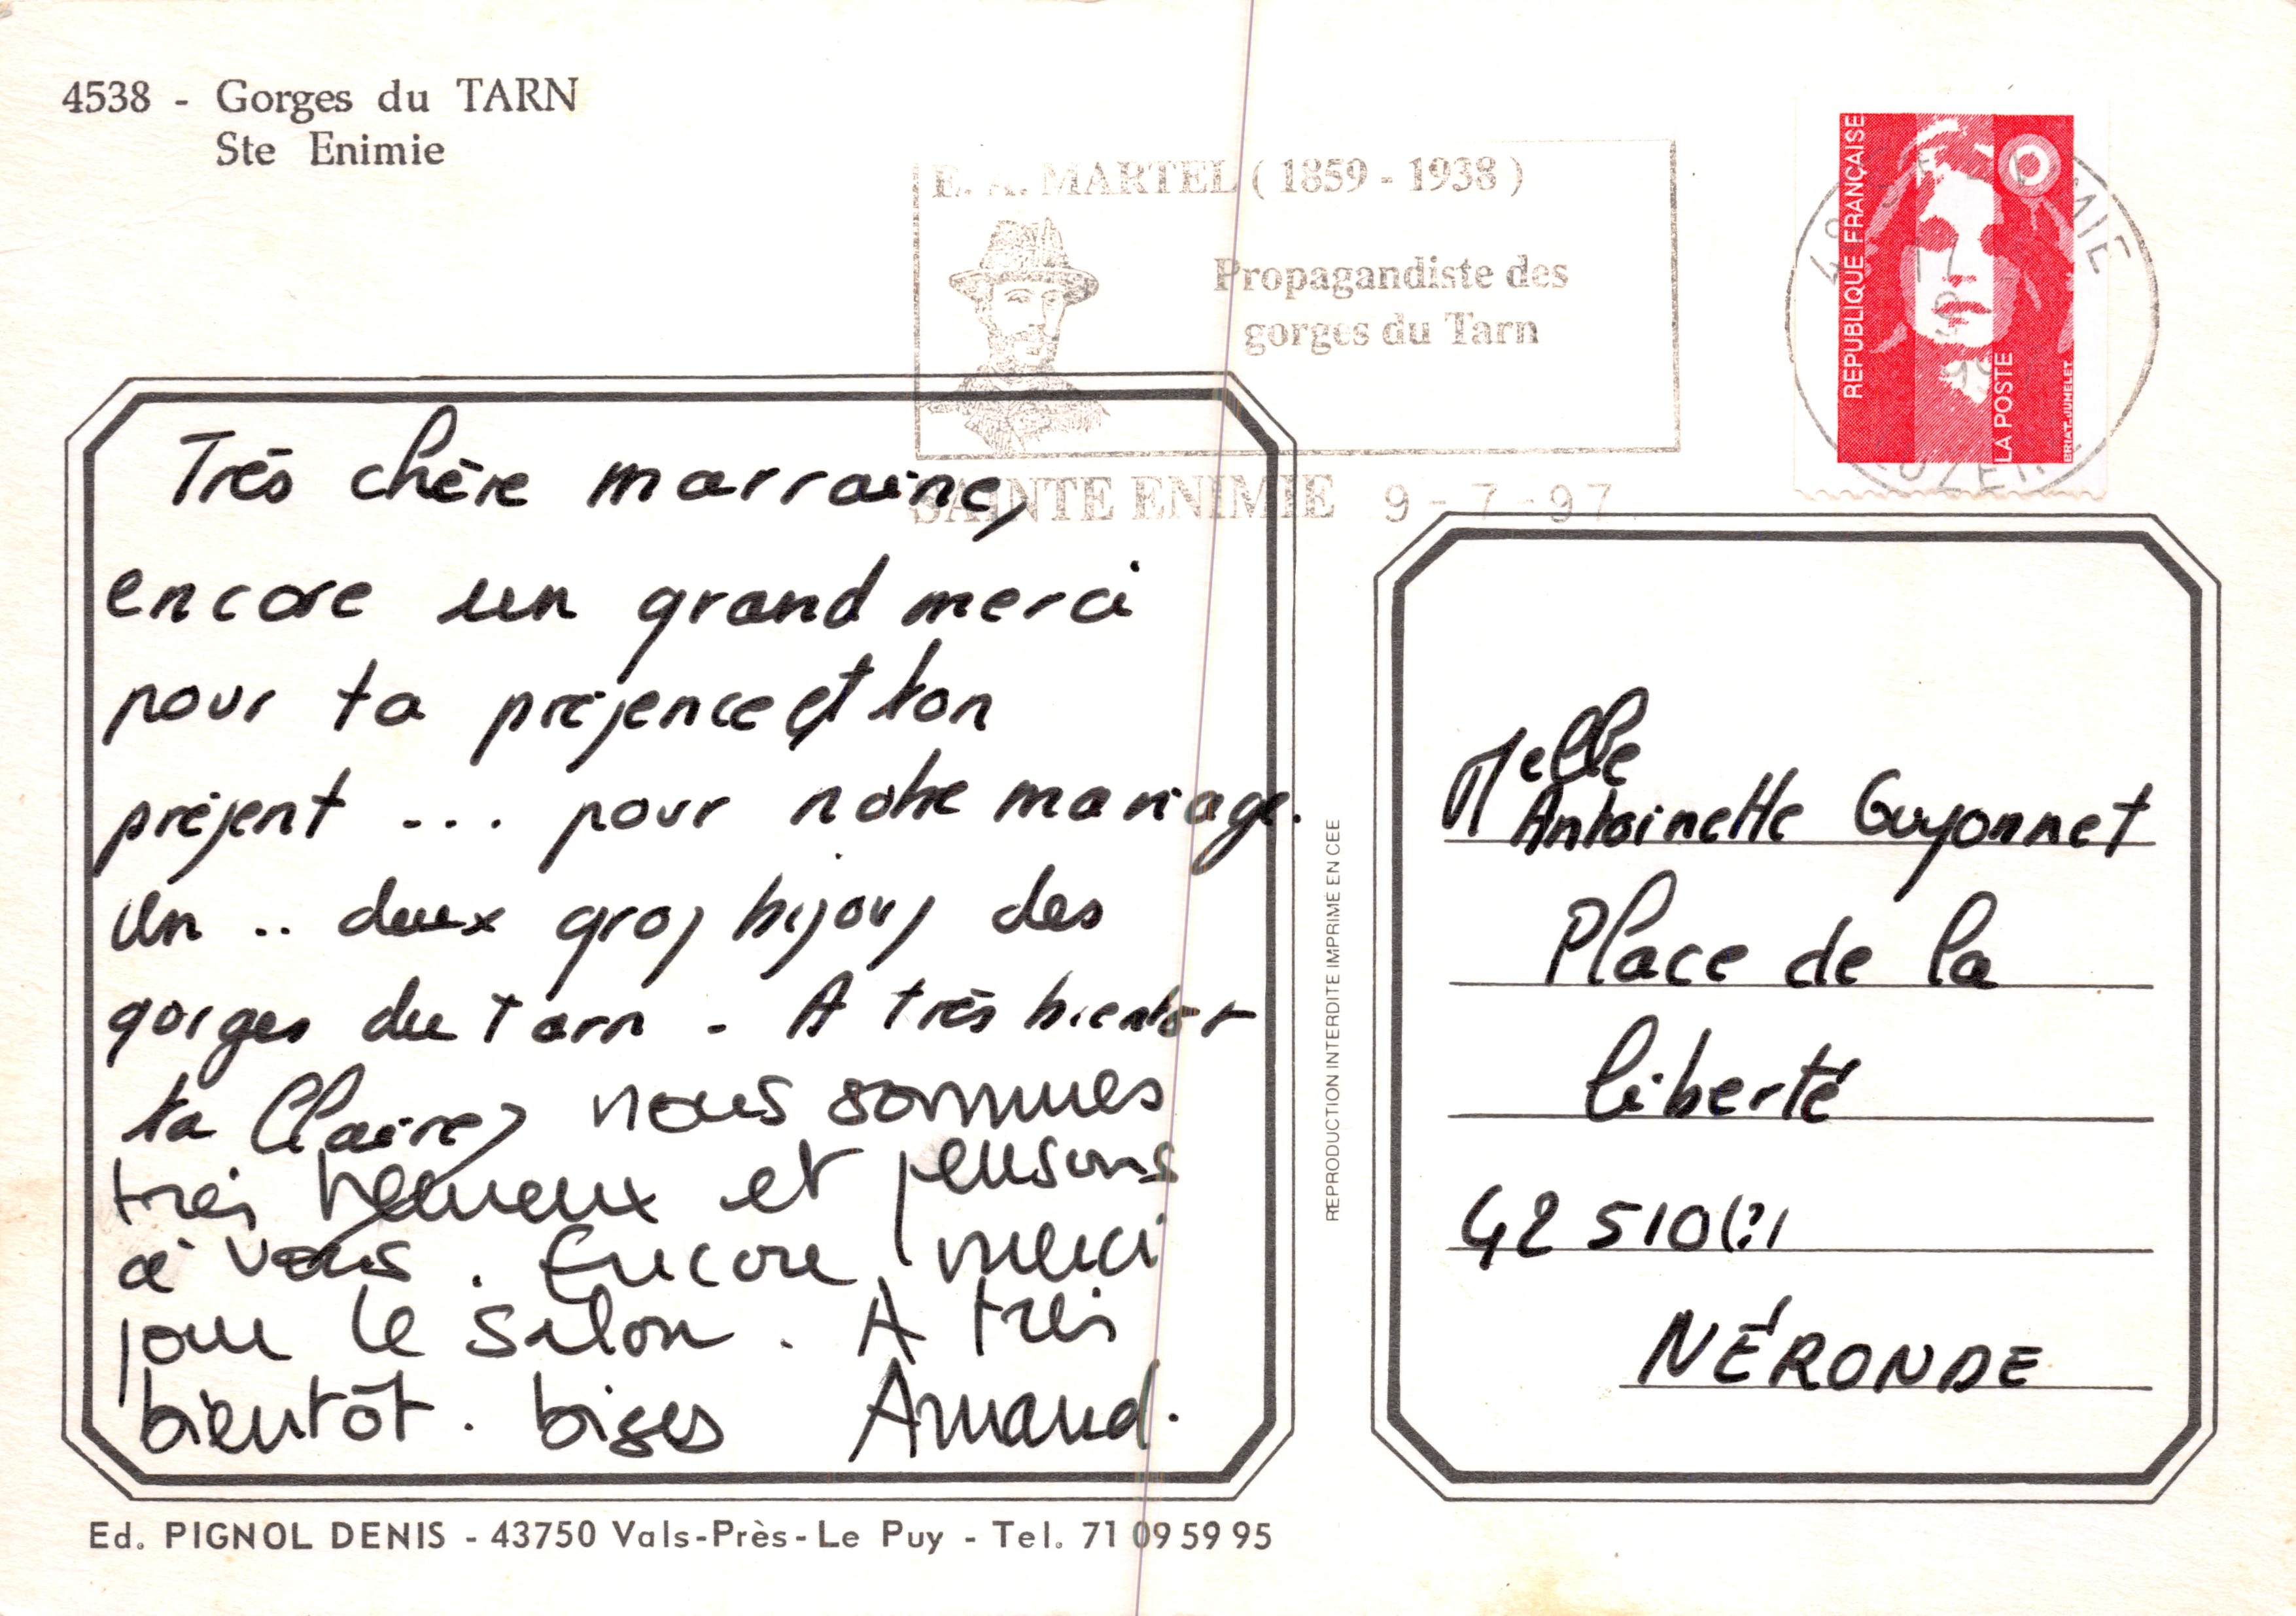 4538 - Gorges du TARN
Ste Enimie
E. A. MARTEL ( 1859 - 1938 )
Propagandiste des
gorges du Tarn
SAINTE ENIMIE 9 - 7 - 97
REPUBLIQUE FRANÇAISE
LA POSTE
BRIAT-JUMELET
Très chère marraine,
encore un grand merci
pour ta présence et ton
présent ... pour notre mariage.
Un .. deux gros bijous des
gorges du Tarn - A très bientôt
ta Claire, nous sommes
très heureux et pensons
à vous. Encore merci
pour le salon. A très
bientôt. bises Arnaud.
Melle
Antoinette Guyonnet
Place de la
liberté
42 510 (?)
NÉRONDE
REPRODUCTION INTERDITE IMPRIME EN CEE
Ed. PIGNOL DENIS - 43750 Vals-Près-Le Puy - Tel. 71 09 59 95